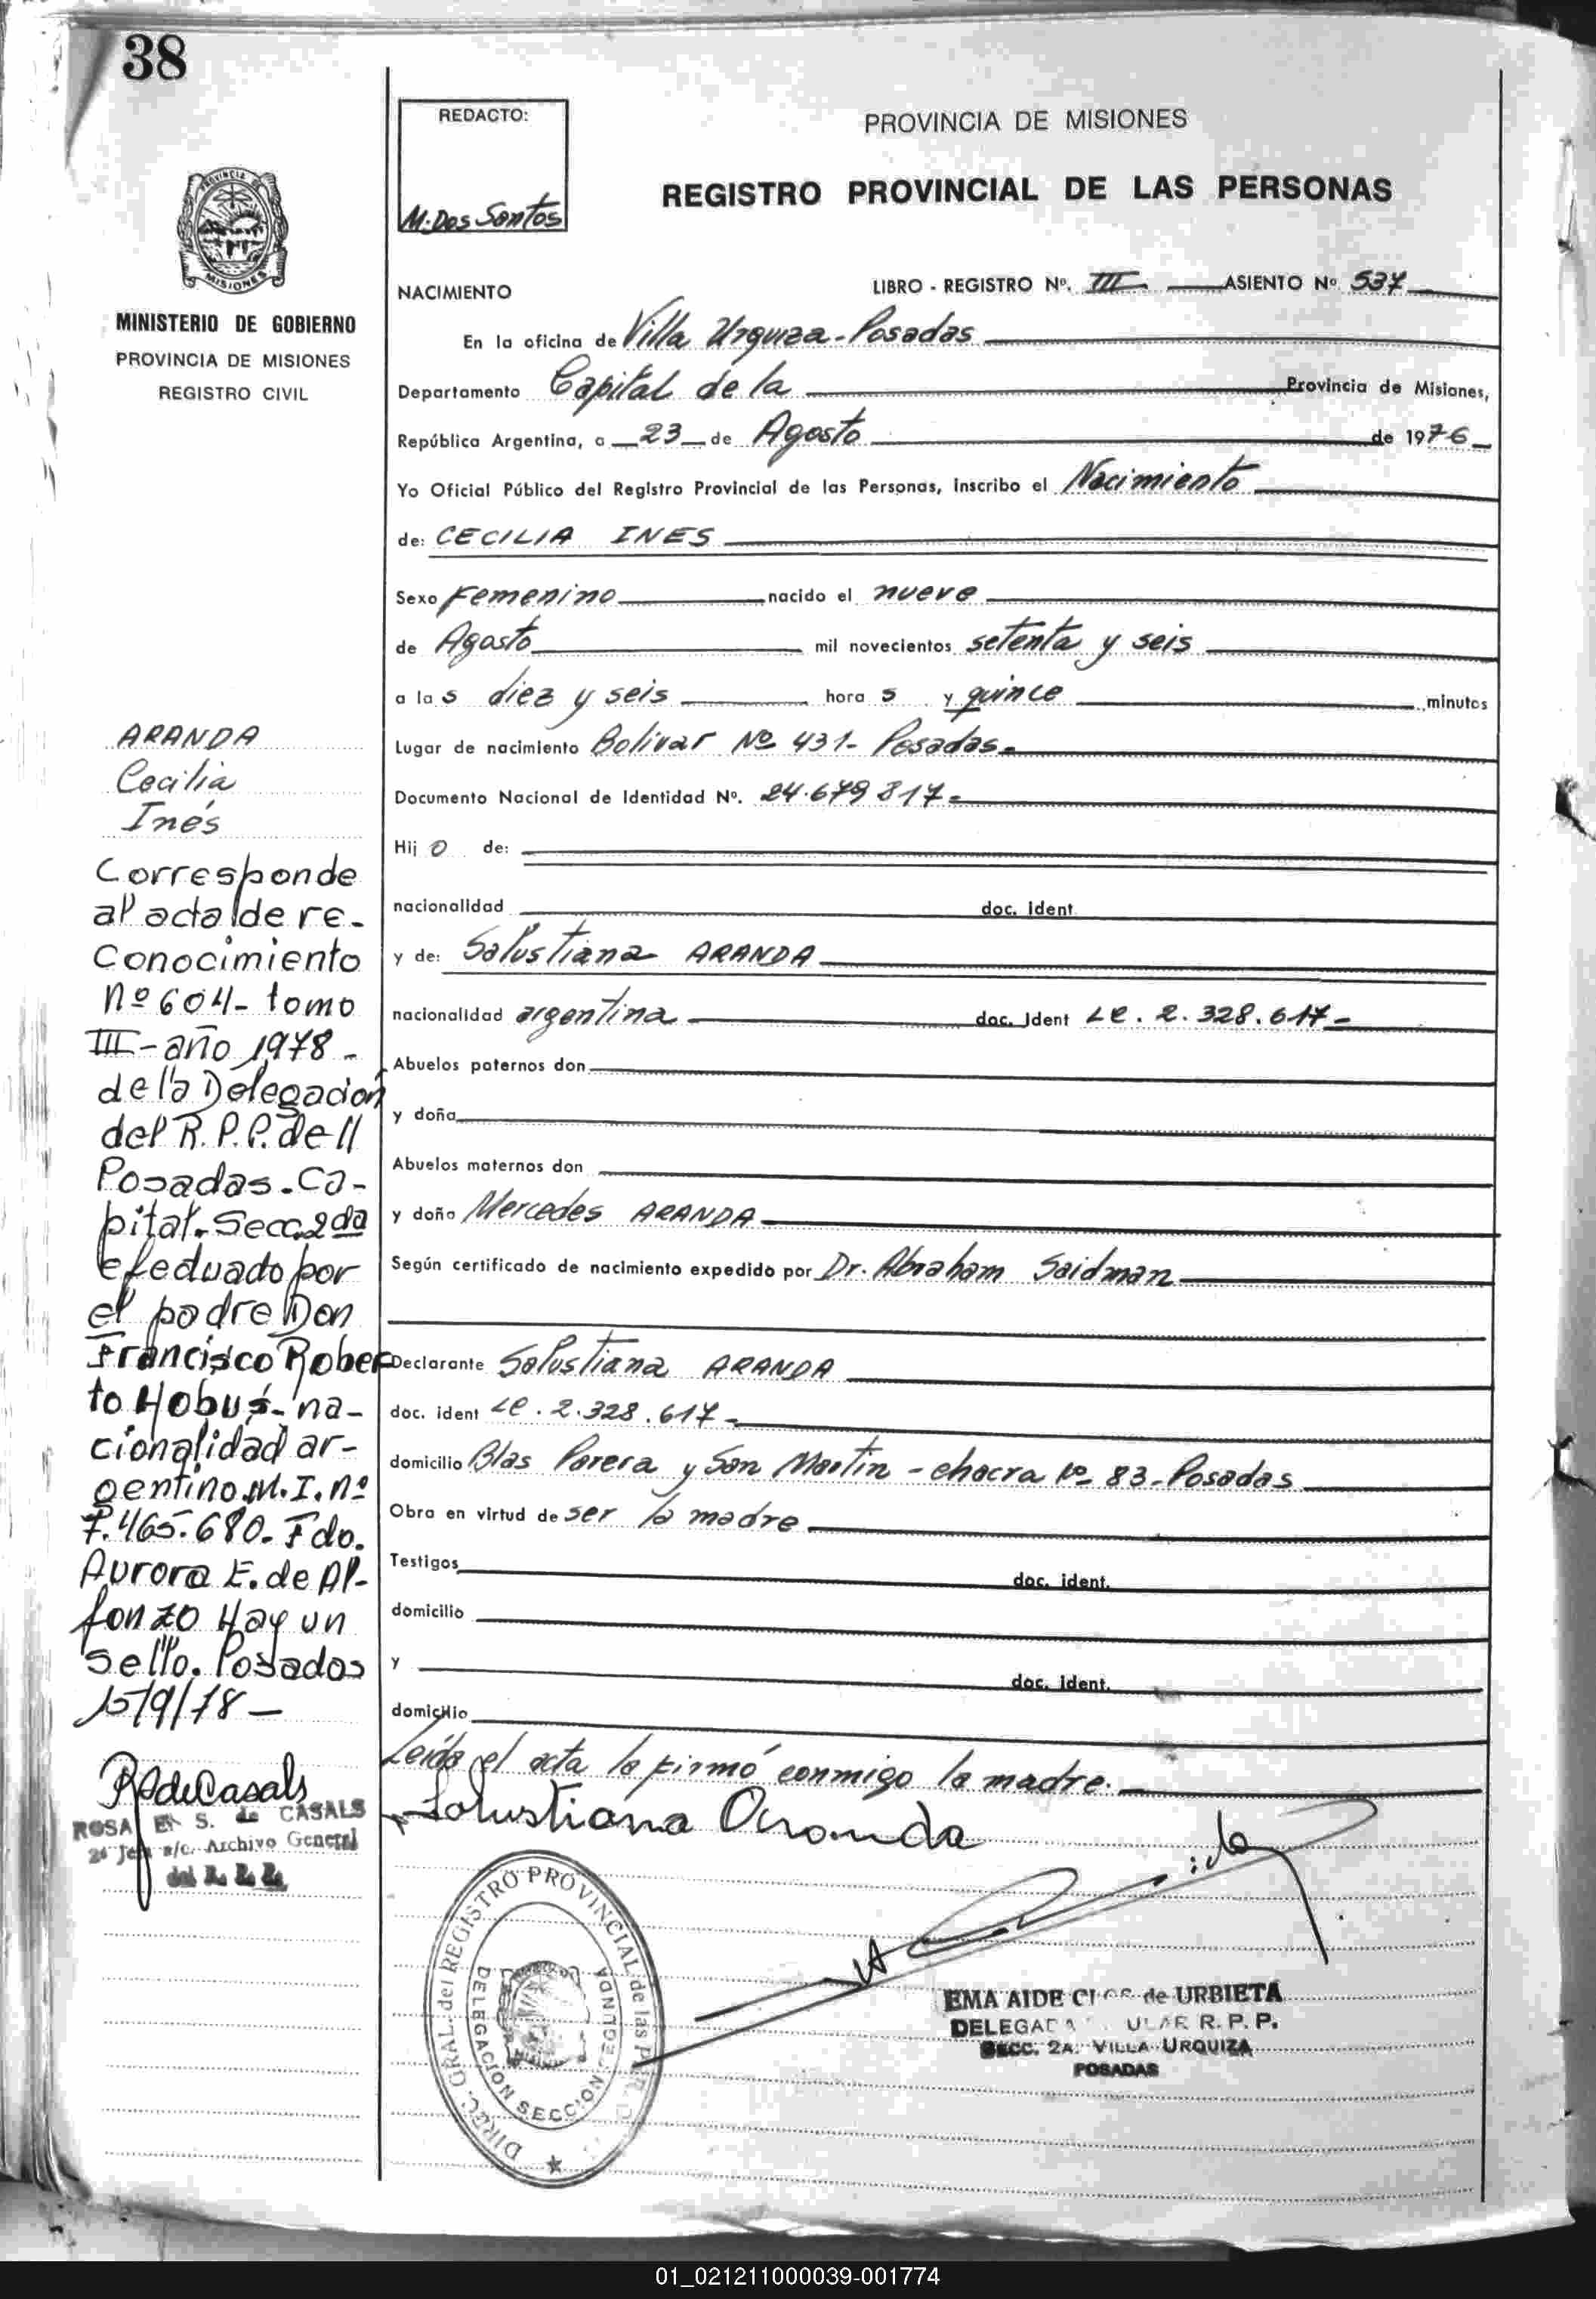 38
REDACTO:
M. Dos Santos
PROVINCIA DE MISIONES
REGISTRO PROVINCIAL DE LAS PERSONAS
PROVINCIA DE
MISIONES
MINISTERIO DE GOBIERNO
PROVINCIA DE MISIONES
REGISTRO CIVIL
NACIMIENTO
LIBRO - REGISTRO Nº. III ASIENTO Nº 537
En la oficina de Villa Urquiza - Posadas
Departamento Capital de la Provincia de Misiones,
República Argentina, a 23 de Agosto de 1976
Yo Oficial Público del Registro Provincial de las Personas, inscribo el Nacimiento
de: CECILIA INES
Sexo Femenino nacido el nueve
de Agosto mil novecientos setenta y seis
a la s diez y seis hora s y quince minutos
Lugar de nacimiento Bolivar Nº 431- Posadas-
Documento Nacional de Identidad Nº. 24.679.817-
Hij o de:
nacionalidad doc. ident.
y de: Salustiana ARANDA
nacionalidad argentina doc. Ident LC. 2.328.617-
Abuelos paternos don
y doña
Abuelos maternos don
y doña Mercedes ARANDA
Según certificado de nacimiento expedido por Dr. Abraham Saidman
Declarante Salustiana ARANDA
doc. ident LC. 2.328.617-
domicilio Blas Parera y San Martin - chacra Nº 83-Posadas
Obra en virtud de ser la madre
Testigos doc. ident.
domicilio
y doc. ident.
domicilio
Leída el acta la firmó conmigo la madre.
Salustiana Aranda
ARANDA
Cecilia
Inés
Corresponde
al acta de re-
conocimiento
nº 604- tomo
III- año 1978-
de la Delegación
del R.P.P. de
Posadas. Ca-
pital. Secc. 2da
efectuado por
el padre Don
Francisco Rober
to Hobus- na-
cionalidad ar-
gentino M.I. nº
7.465.680. Fdo.
Aurora E. de Al-
fonzo Hay un
Sello. Posadas
15/9/78-
RAdeCasals
ROSA S. de CASALS
a/c. Archivo General
del R. P. P.
DIREC. GRAL. del REGISTRO PROVINCIAL de las
DELEGACION SECCION SEGUNDA
EMA AIDE de URBIETA
R. P. P.
SECC. 2A. VILLA URQUIZA
POSADAS
01_021211000039-001774